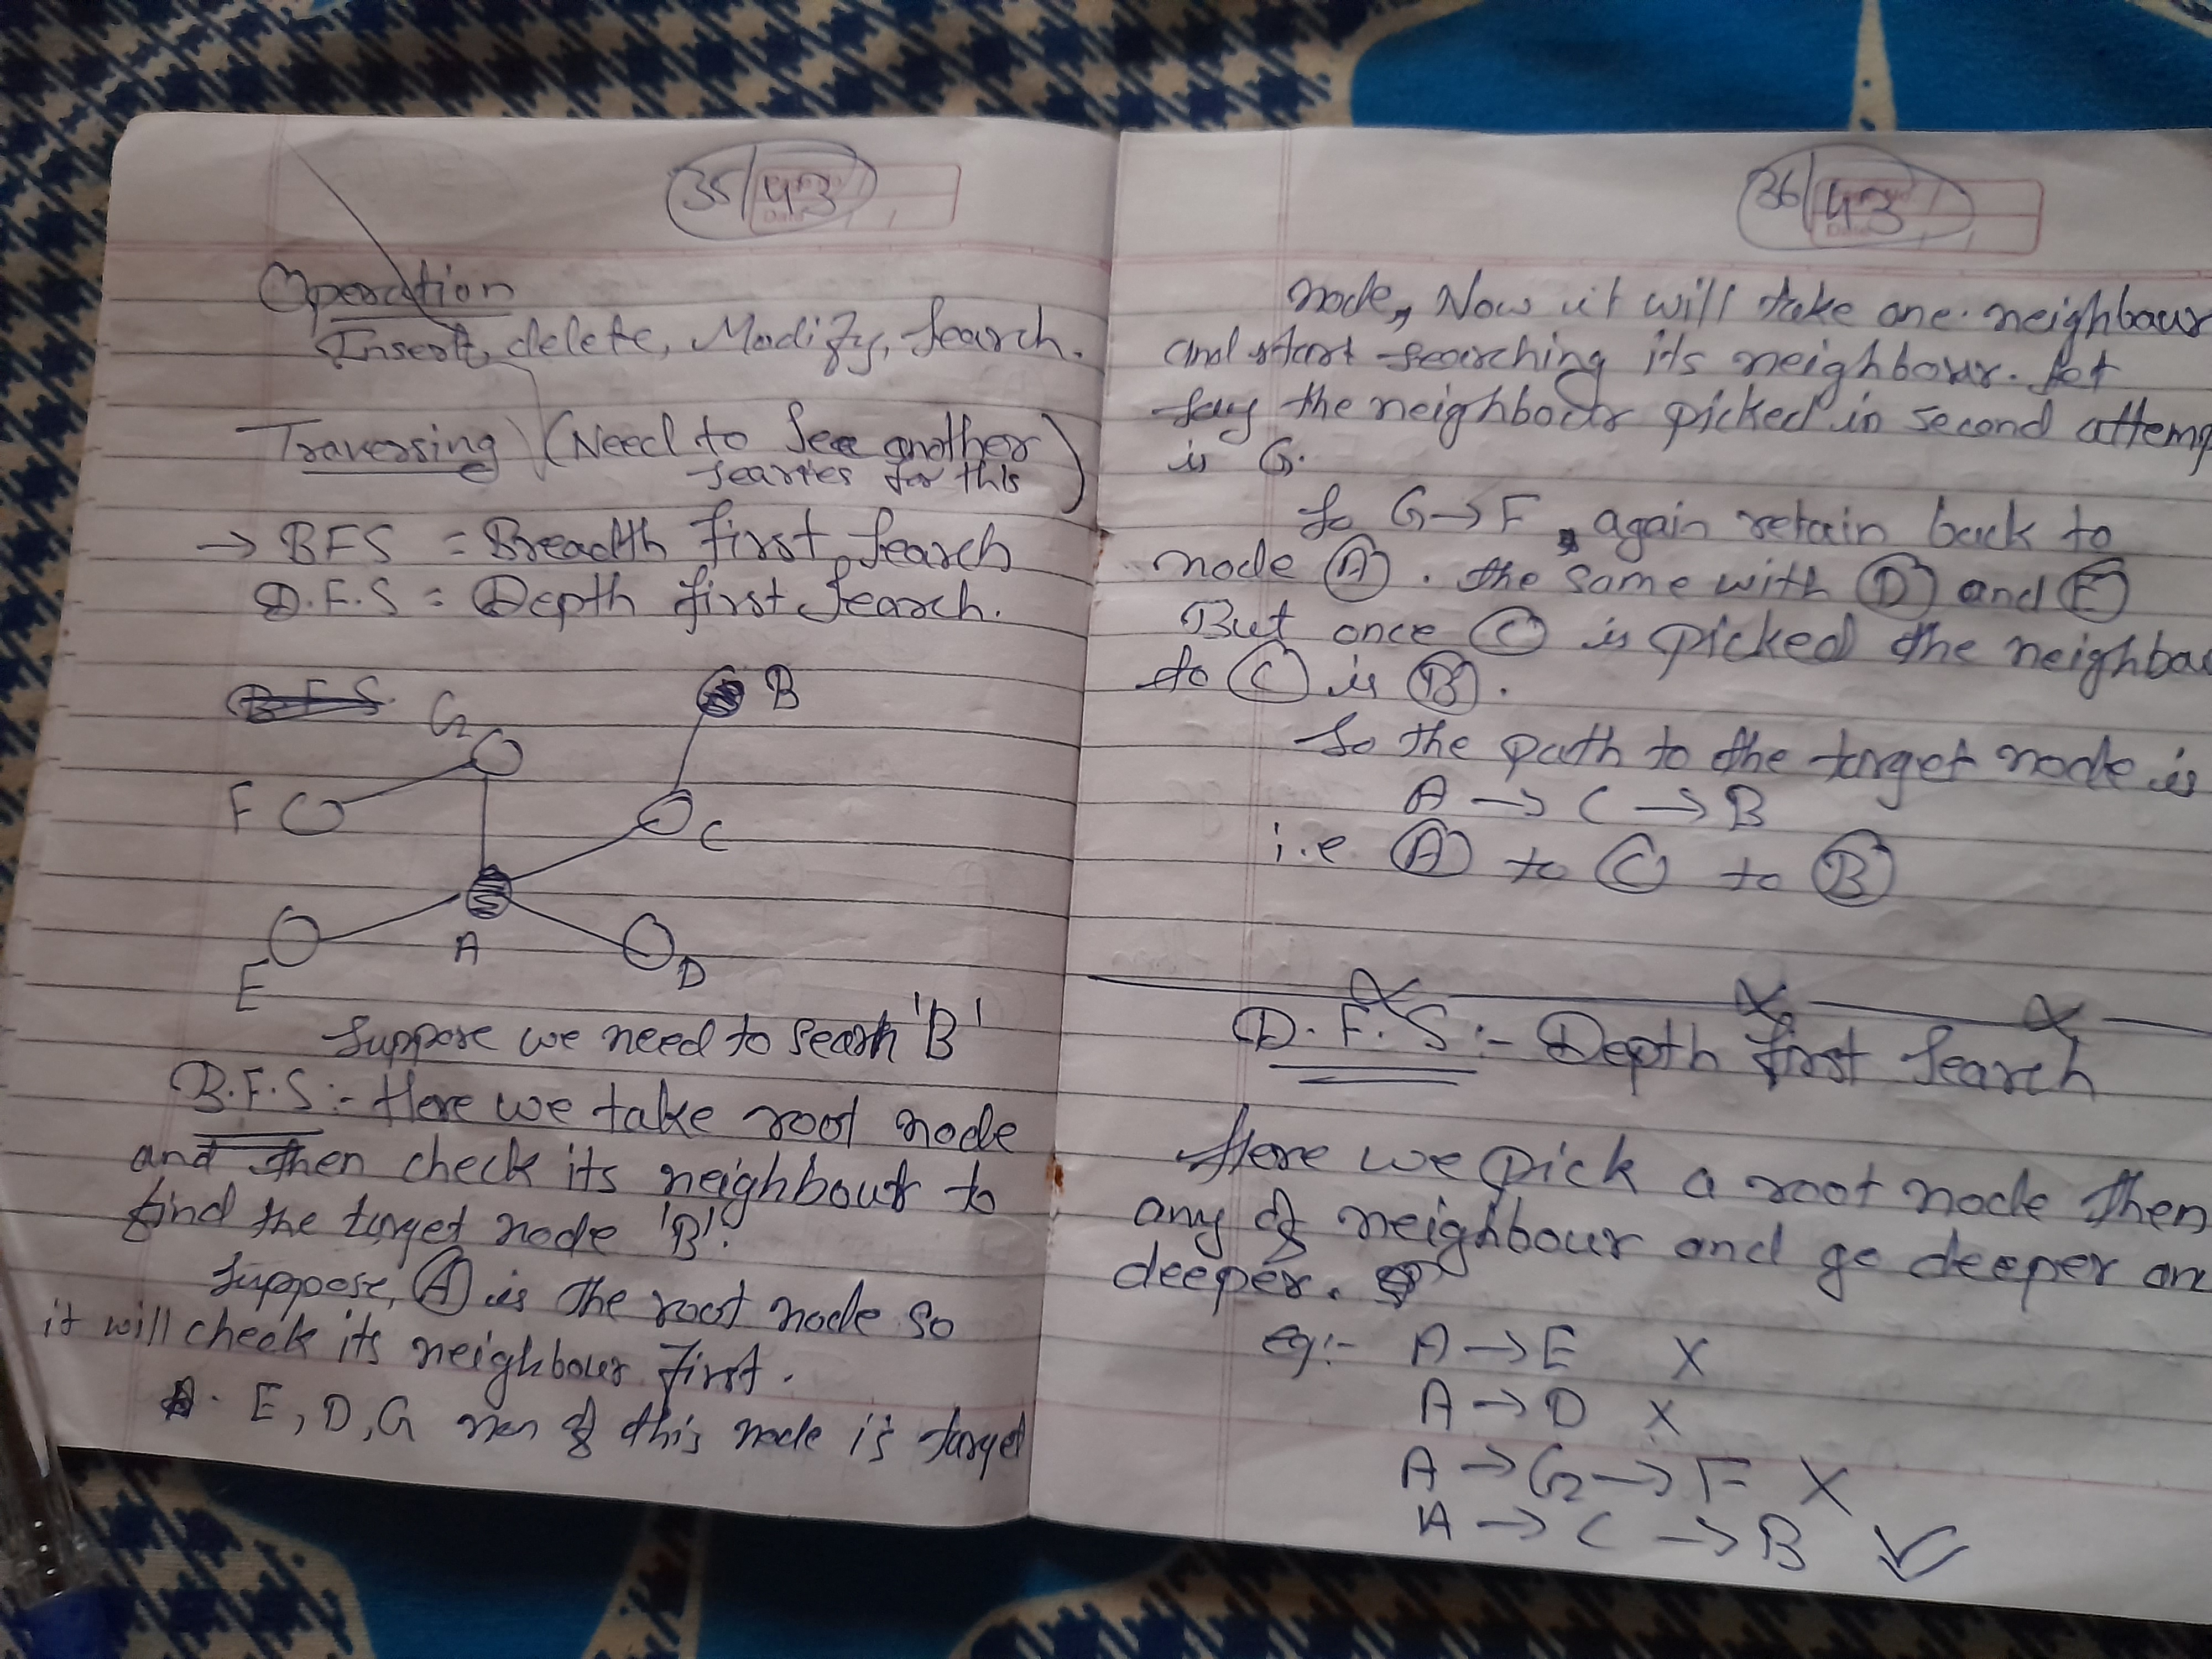 35/43
Operation
Insert, delete, Modify, Search.
Traversing (Need to See another
searies for this)
→ BFS = Breadth first Search
D.F.S = Depth first Search.
B.F.S.
G
B
F
C
A
E
D
Suppose we need to search 'B'
B.F.S :- Here we take root node
and then check its neighbour to
find the target node 'B'.
Suppose, A is the root node so
it will check its neighbour first.
E, D, G non of this node is target
36/43
node, Now it will take one neighbour
and start searching its neighbour. Let
say the neighbour picked in second attemp
is G.
So G→F, again retain back to
node A. the same with D and E
But once C is picked the neighbou
to C is B.
So the path to the target node is
A → C → B
i.e A to C to B
D.F.S :- Depth first Search
Here we pick a root node then
any of neighbour and go deeper an
deeper.
eg:- A → E X
A → D X
A → G → F X
A → C → B ✓